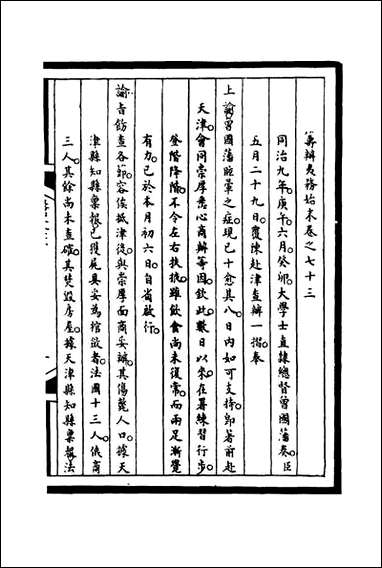 籌辦夷務始末卷之七十三
同治九年庚午六月癸卯大學士直隸總督曾國藩奏臣
五月二十九日覆陳赴津查辦一摺奉
上諭曾國藩眩暈之症現已十愈其八日內如可支持即著前赴
天津會同崇厚悉心商辦等因欽此數日以來在署練習行步
登階降階不令左右扶掖雖飲食尚未復常而兩足漸覺
有力已於本月初六日自省啟行
諭旨飭查各節容俟抵津後與崇厚面商妥辦其傷斃人口據天
津縣知縣稟報已獲屍具妥為棺斂者法國十三人俄商
三人其餘尚未查確其焚毀房屋據天津縣知縣稟報法